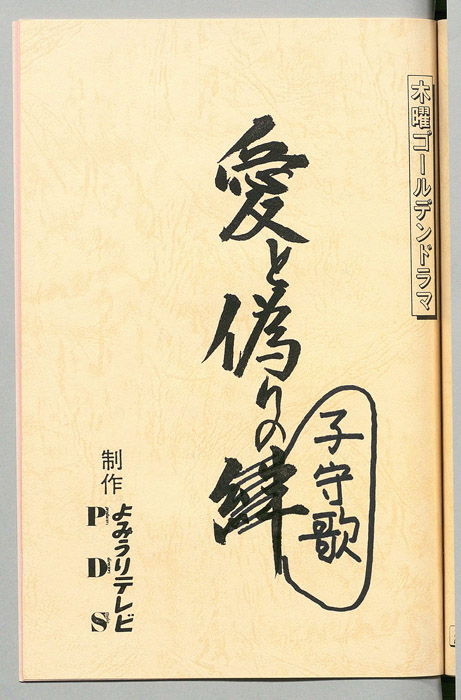 木曜ゴールデンドラマ
愛と偽りの絆
子守歌
制作
よみうりテレビ
PDS